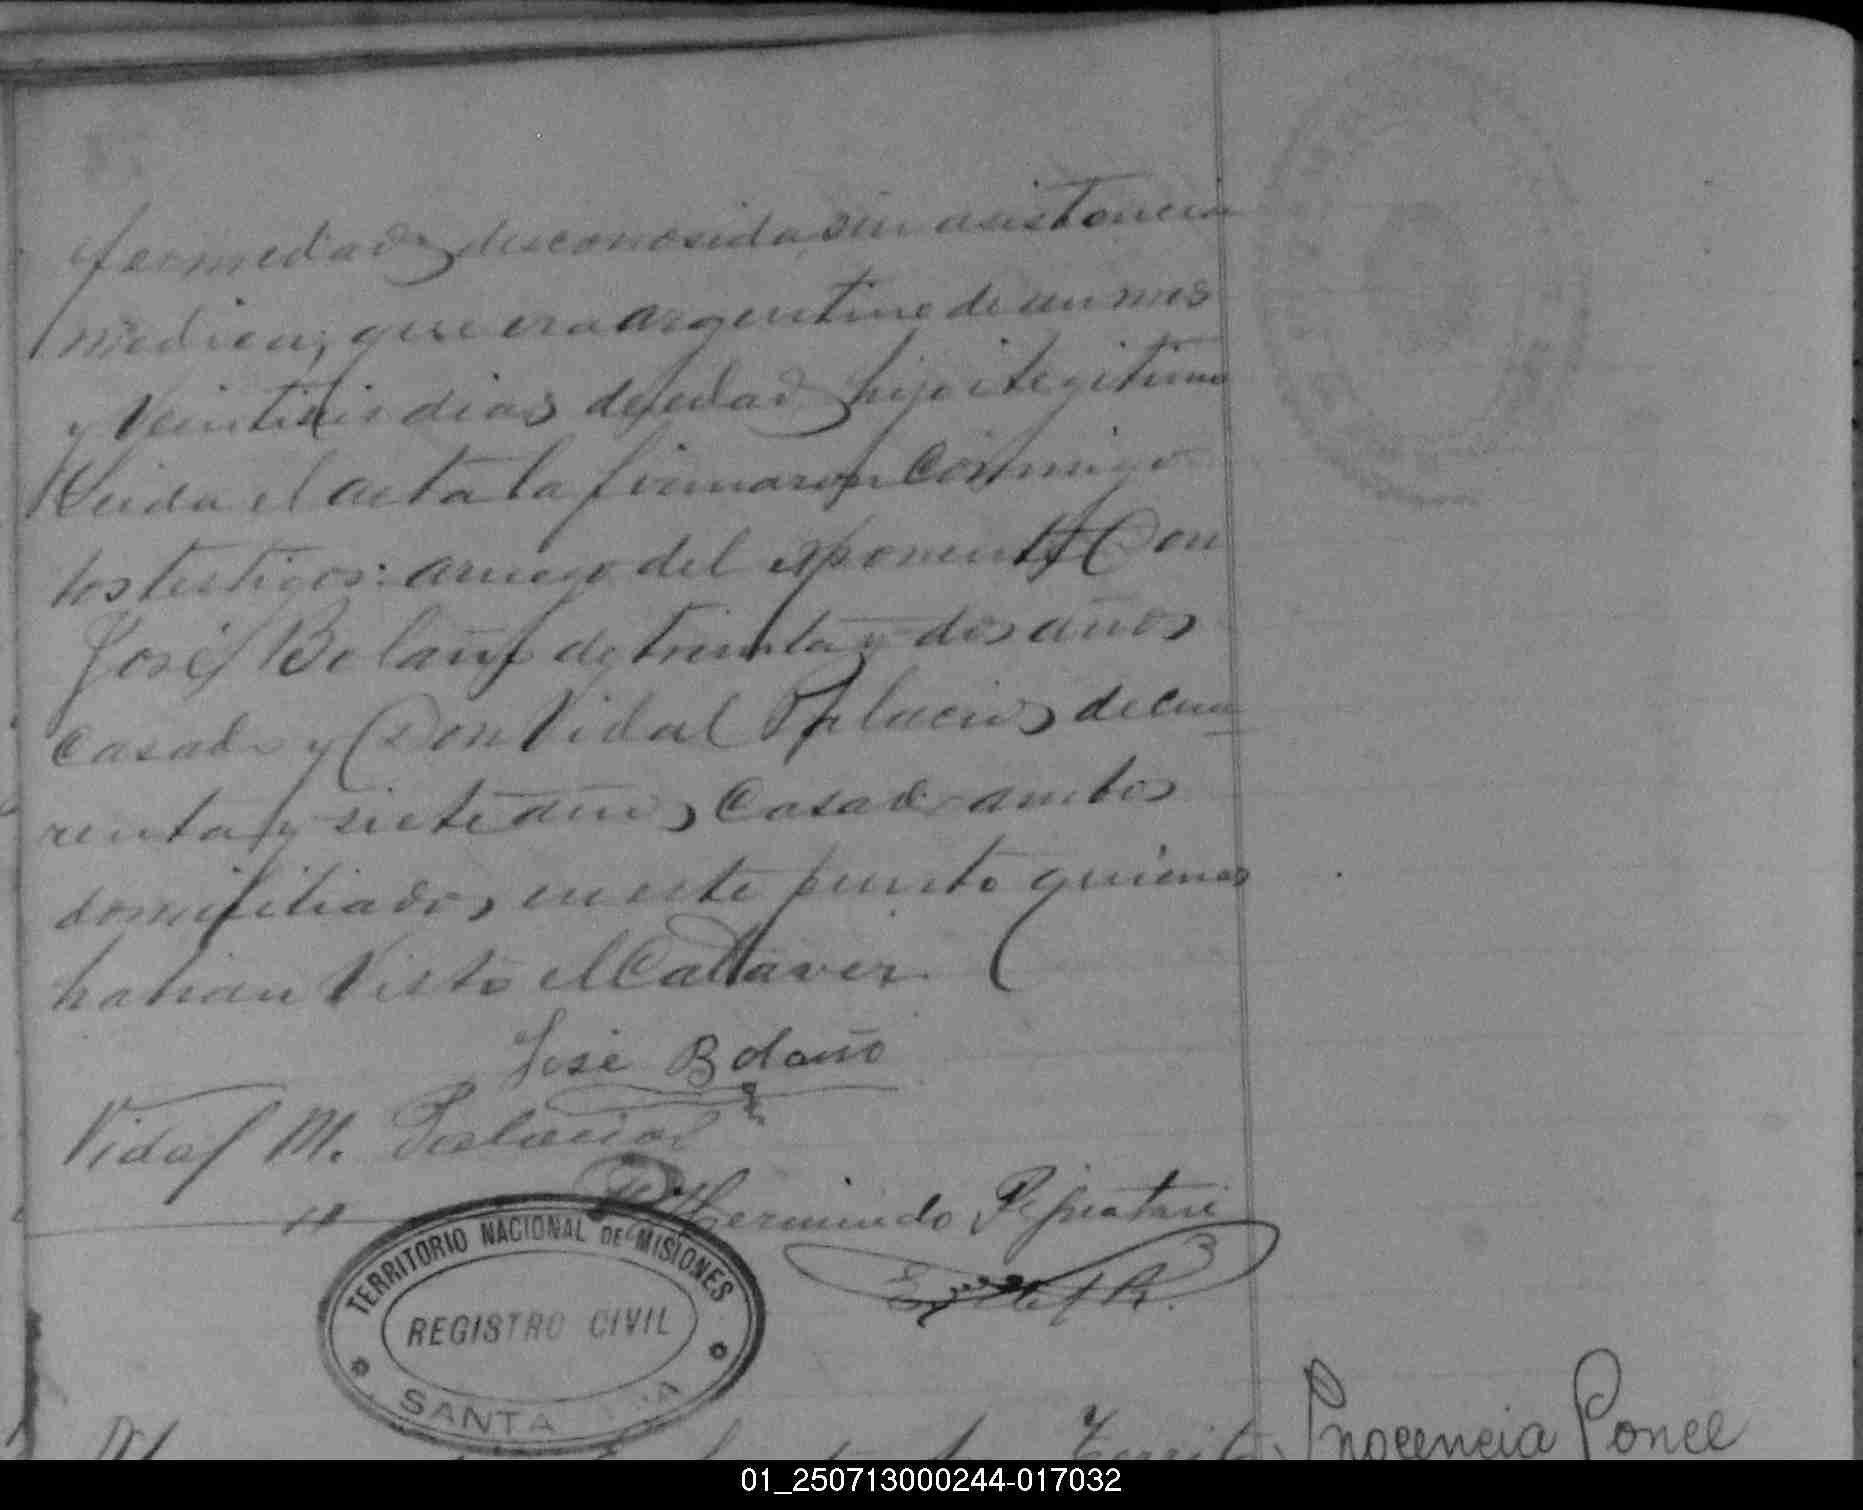 fermedad desconosida, sin asistencia
medica; que era argentino de un mes
y veintiseis dias de edad hijo ilegitimo
Leida el acta la firmaron conmigo
los testigos: a ruego del esponente Don
José Bolaño de treinta y dos años
casado y Don Vidal Palacios de cua
renta y siete años, casado ambos
domisiliados, en este punto quienes
habian visto el Cadaver
José Bolaño
Vidal M. Palacios
Hermindo
TERRITORIO NACIONAL DE MISIONES
REGISTRO CIVIL
SANTA
Territo
Inocencia Ponce
01_250713000244-017032